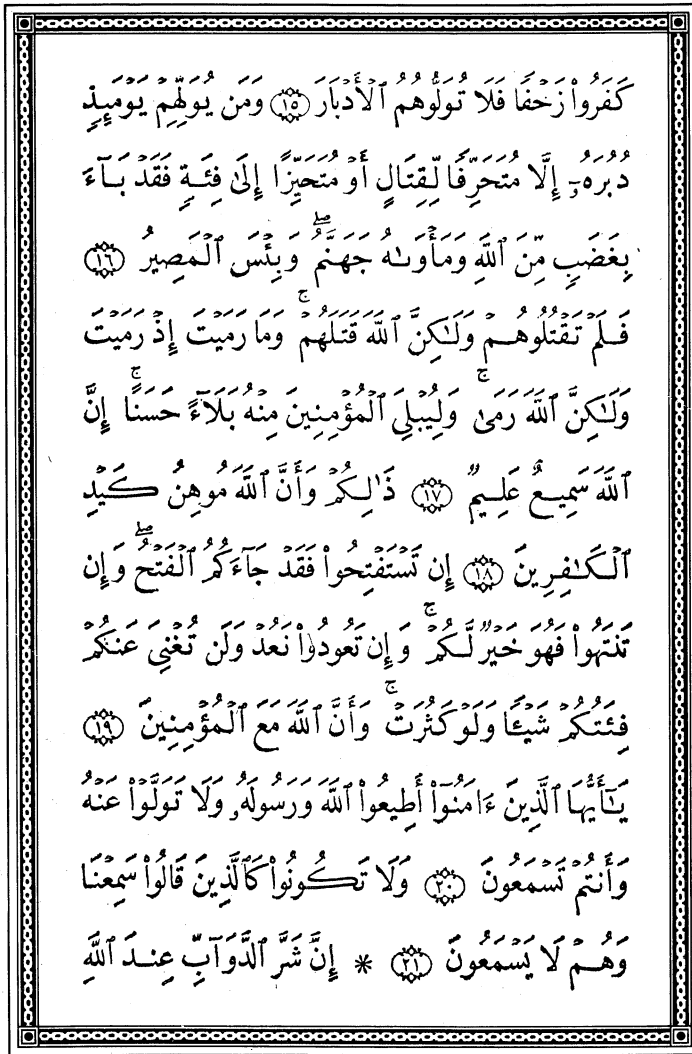 كَفَرُوا۟ زَحْفًا فَلَا تُوَلُّوهُمُ ٱلْأَدْبَارَ ﴿١٥﴾ وَمَن يُوَلِّهِمْ يَوْمَئِذٍ
دُبُرَهُۥٓ إِلَّا مُتَحَرِّفًا لِّقِتَالٍ أَوْ مُتَحَيِّزًا إِلَىٰ فِئَةٍ فَقَدْ بَآءَ
بِغَضَبٍ مِّنَ ٱللَّهِ وَمَأْوَىٰهُ جَهَنَّمُ ۖ وَبِئْسَ ٱلْمَصِيرُ ﴿١٦﴾
فَلَمْ تَقْتُلُوهُمْ وَلَٰكِنَّ ٱللَّهَ قَتَلَهُمْ ۚ وَمَا رَمَيْتَ إِذْ رَمَيْتَ
وَلَٰكِنَّ ٱللَّهَ رَمَىٰ ۚ وَلِيُبْلِىَ ٱلْمُؤْمِنِينَ مِنْهُ بَلَآءً حَسَنًا ۚ إِنَّ
ٱللَّهَ سَمِيعٌ عَلِيمٌ ﴿١٧﴾ ذَٰلِكُمْ وَأَنَّ ٱللَّهَ مُوهِنُ كَيْدِ
ٱلْكَٰفِرِينَ ﴿١٨﴾ إِن تَسْتَفْتِحُوا۟ فَقَدْ جَآءَكُمُ ٱلْفَتْحُ ۖ وَإِن
تَنتَهُوا۟ فَهُوَ خَيْرٌ لَّكُمْ ۚ وَإِن تَعُودُوا۟ نَعُدْ وَلَن تُغْنِىَ عَنكُمْ
فِئَتُكُمْ شَيْـًٔا وَلَوْ كَثُرَتْ ۚ وَأَنَّ ٱللَّهَ مَعَ ٱلْمُؤْمِنِينَ ﴿١٩﴾
يَٰٓأَيُّهَا ٱلَّذِينَ ءَامَنُوٓا۟ أَطِيعُوا۟ ٱللَّهَ وَرَسُولَهُۥ وَلَا تَوَلَّوْا۟ عَنْهُ
وَأَنتُمْ تَسْمَعُونَ ﴿٢٠﴾ وَلَا تَكُونُوا۟ كَٱلَّذِينَ قَالُوا۟ سَمِعْنَا
وَهُمْ لَا يَسْمَعُونَ ﴿٢١﴾ * إِنَّ شَرَّ ٱلدَّوَآبِّ عِندَ ٱللَّهِ